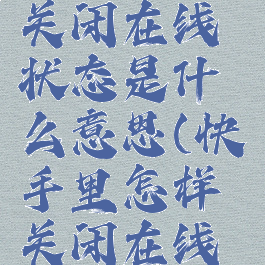 关闭在线
状态是什
么意思(快
手里怎样
关闭在线